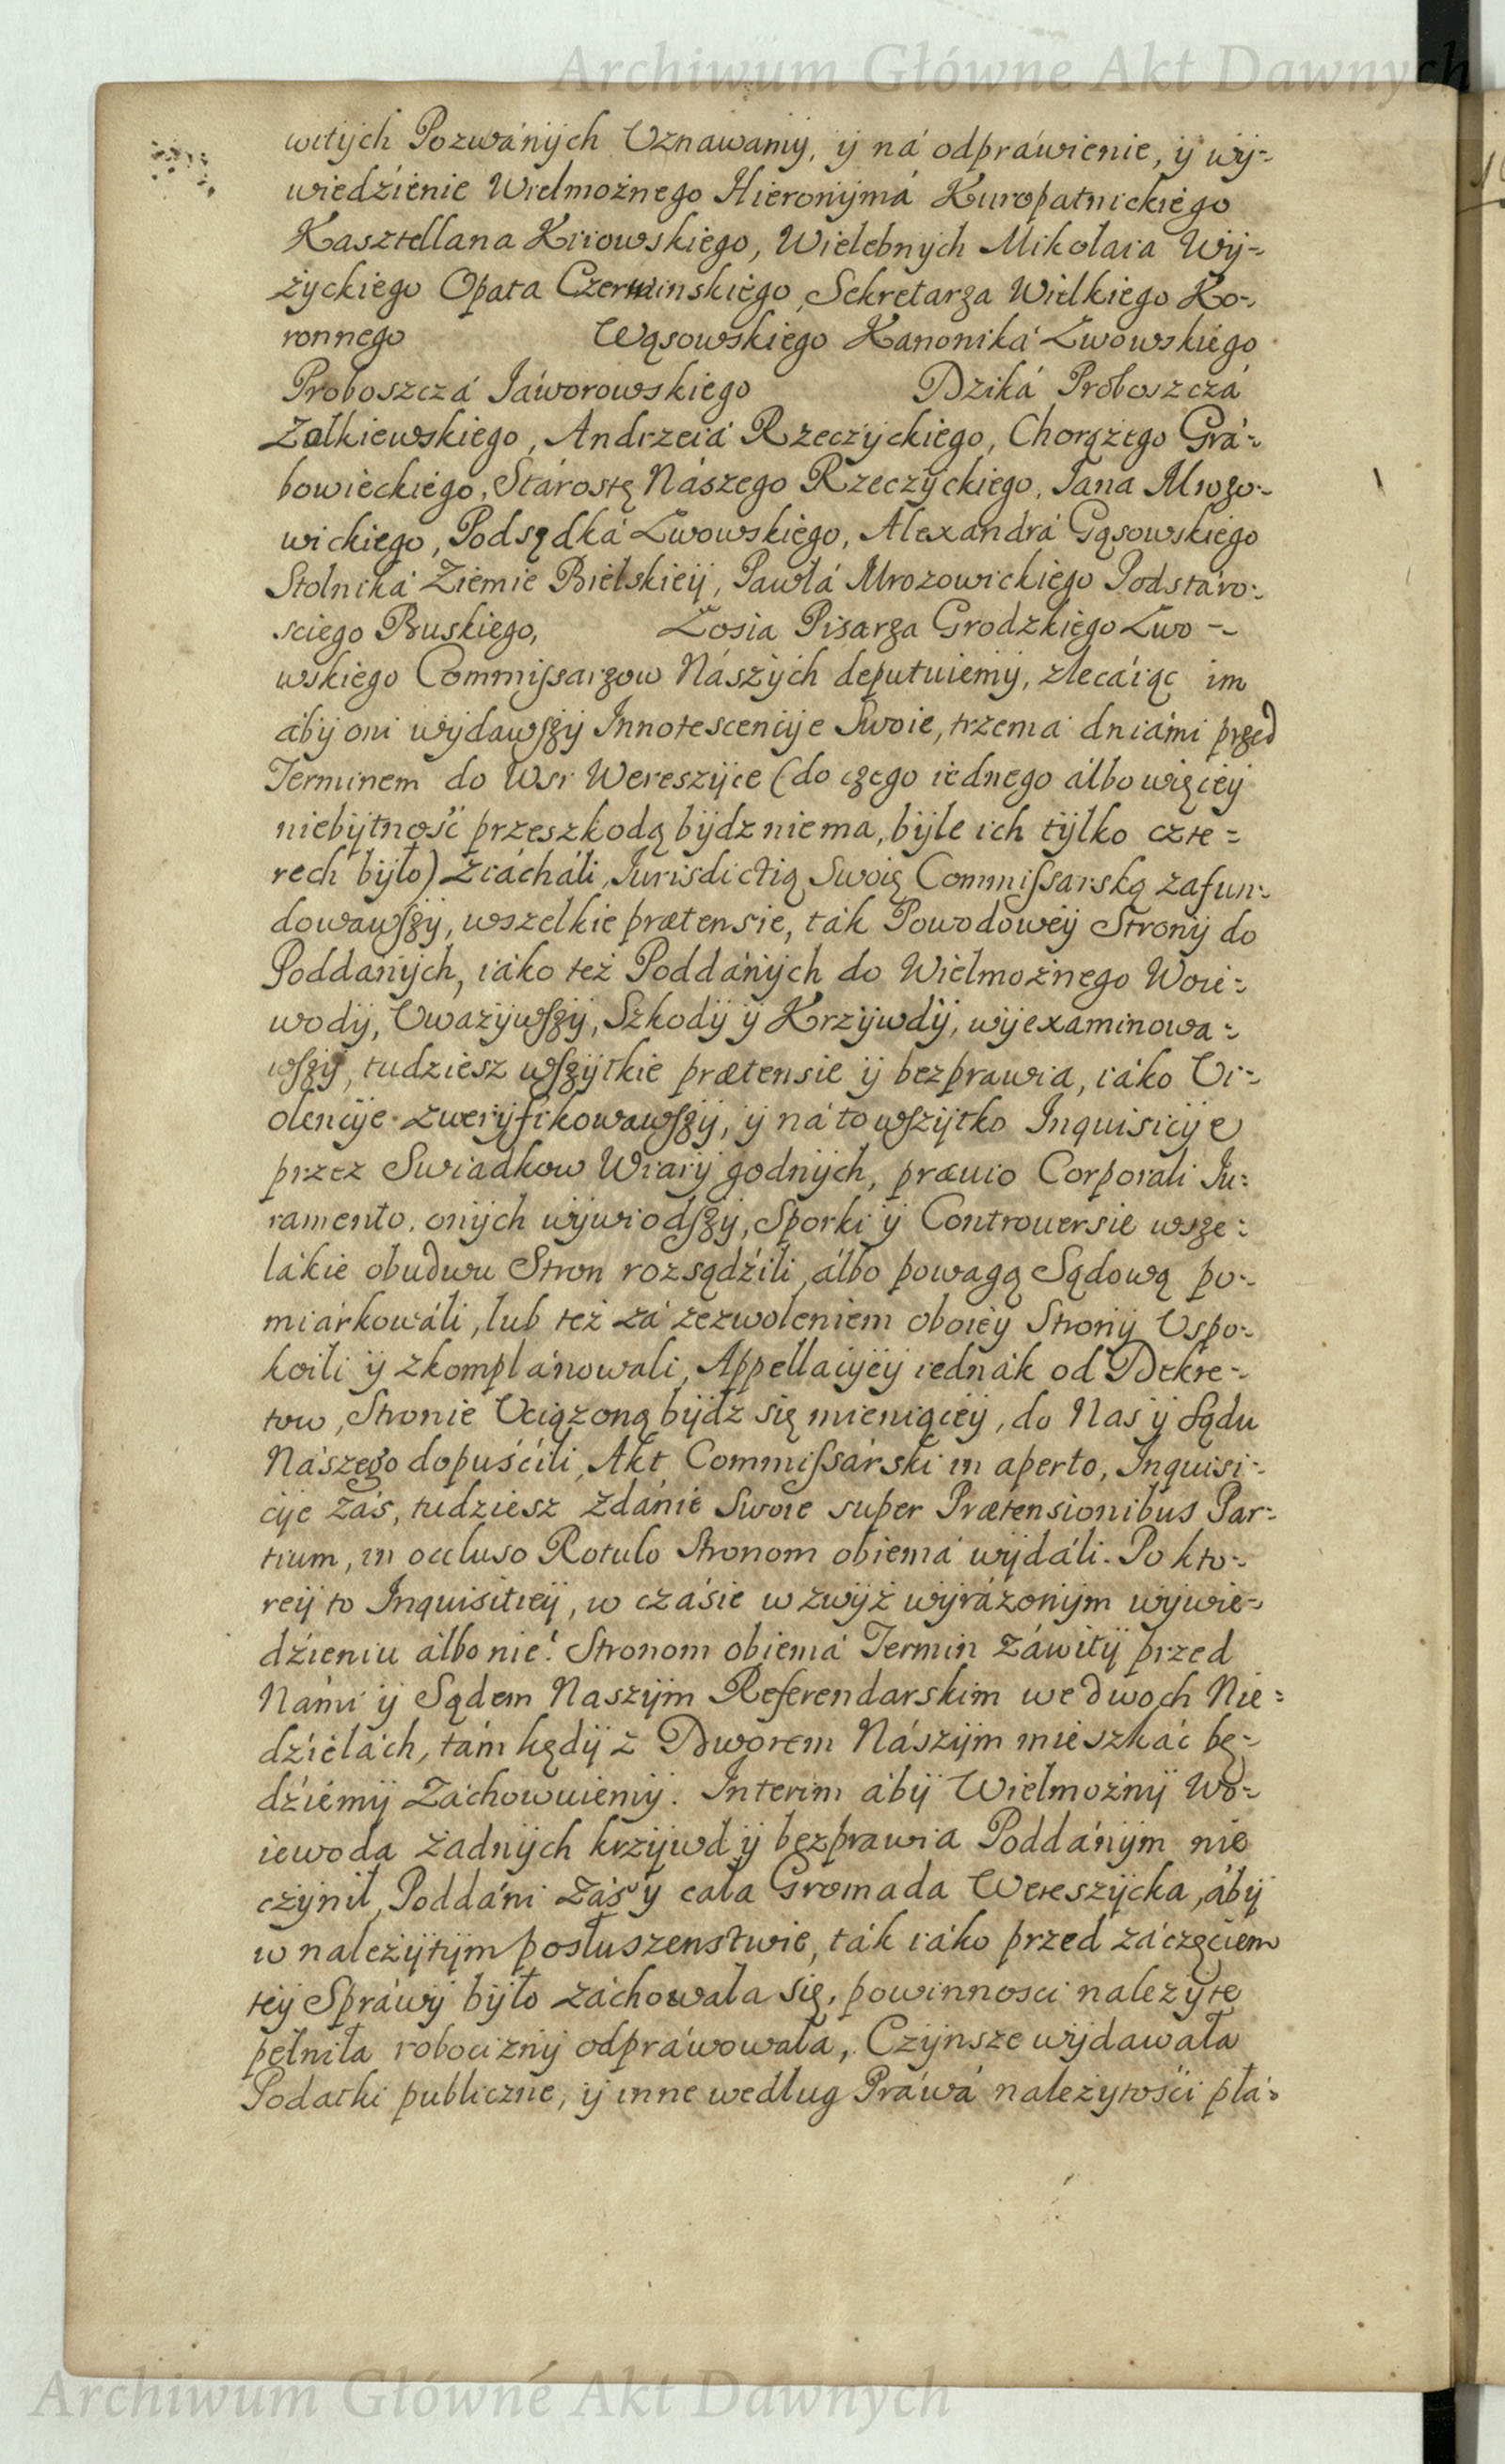 Archiwum Główne Akt Dawnych
witych Pozwánych Uznawamy, y ná odpráwienie, y wy=
wiedzienie Wielmożnego Hieronymá Kuropatnickiego
Kasztellana Kiiowskiego, Wielebnych Mikołaia Wy=
życkiego Opata Czerwinskiego, Sekretarza Wielkiego Ko=
ronnego Wąsowskiego Kanoniká Lwowskiego
Proboszczá Jáworowskiego Dziká Proboszczá
Zolkiewskiego, Andrzeiá Rzeczyckiego, Chorążego Grá=
bowieckiego, Stárostę Nászego Rzeczyckiego, Jana Mrozo=
wickiego, Podsędká Lwowskiego, Alexandrá Gąsowskiego
Stolniká Ziemie Bielskiey, Pawłá Mrozowickiego Podstáro=
sciego Buskiego, Łosia Pisarza Grodzkiego Lwo=
wskiego Commissarzow Nászych deputuiemy, zlecáiąc im
áby oni wydawszy Innotescencye Swoie, trzemá dniámi przed
Terminem do Wsi Wereszyce (do czego iednego álbo więcey
niebytność przeszkodą bydz niema, byle ich tylko czte=
rech było) ziácháli, Jurisdictią Swoię Commissarską zafun=
dowawszy, wszelkie prætensie, ták Powodowey Strony do
Poddánych, iáko też Poddánych do Wielmożnego Woie=
wody, Uwazywszy, Szkody y Krzywdy, wyexaminowa=
wszy, tudziesz wszytkie prætensie y bezprawia, iáko Vi=
olencye zweryfikowawszy, y ná to wszytko Inquisicye
przez Swiadkow Wiary godnych, prævio Corporali Ju=
ramento, onych wywiodszy, Sporki y Controversie wsze=
lákie obudwu Stron rozsądźili, álbo powagą Sądową po=
miárkowáli, lub też zá zezwoleniem oboiey Strony Uspo=
koili y zkomplánowali, Appellacyey iednák od Dekre=
tow, Stronie Uciązoną bydz się mieniącey, do Nas y Sądu
Nászego dopuśćili, Akt Commissárski in aperto, Inquisi=
cye záś, tudziesz zdánie Swoie super Prætensionibus Par=
tium, in occluso Rotulo Stronom obiemá wydáli. Po kto=
rey to Inquisitiey, w czásie wzwyż wyrázonym wywie=
dzieniu álbo nie! Stronom obiemá Termin záwity przed
Námi y Sądem Naszym Referendarskim we dwoch Nie=
dźielách, tám kędy z Dworem Nászym mieszkáć bę=
dźiemy Záchowuiemy. Interim áby Wielmożny Wo=
iewoda żadnych krzywd y bezprawia Poddánym nie
czynił, Poddáni záś y cała Gromada Wereszycka, áby
w należytym posłuszenstwie, ták iáko przed záczęciem
tey Spráwy było záchowała się, powinnosci należyte
pełniła robocizny odpráwowała, Czynsze wydawała
Podatki publiczne, y inne według Práwá należytośći płá=
Archiwum Główne Akt Dawnych